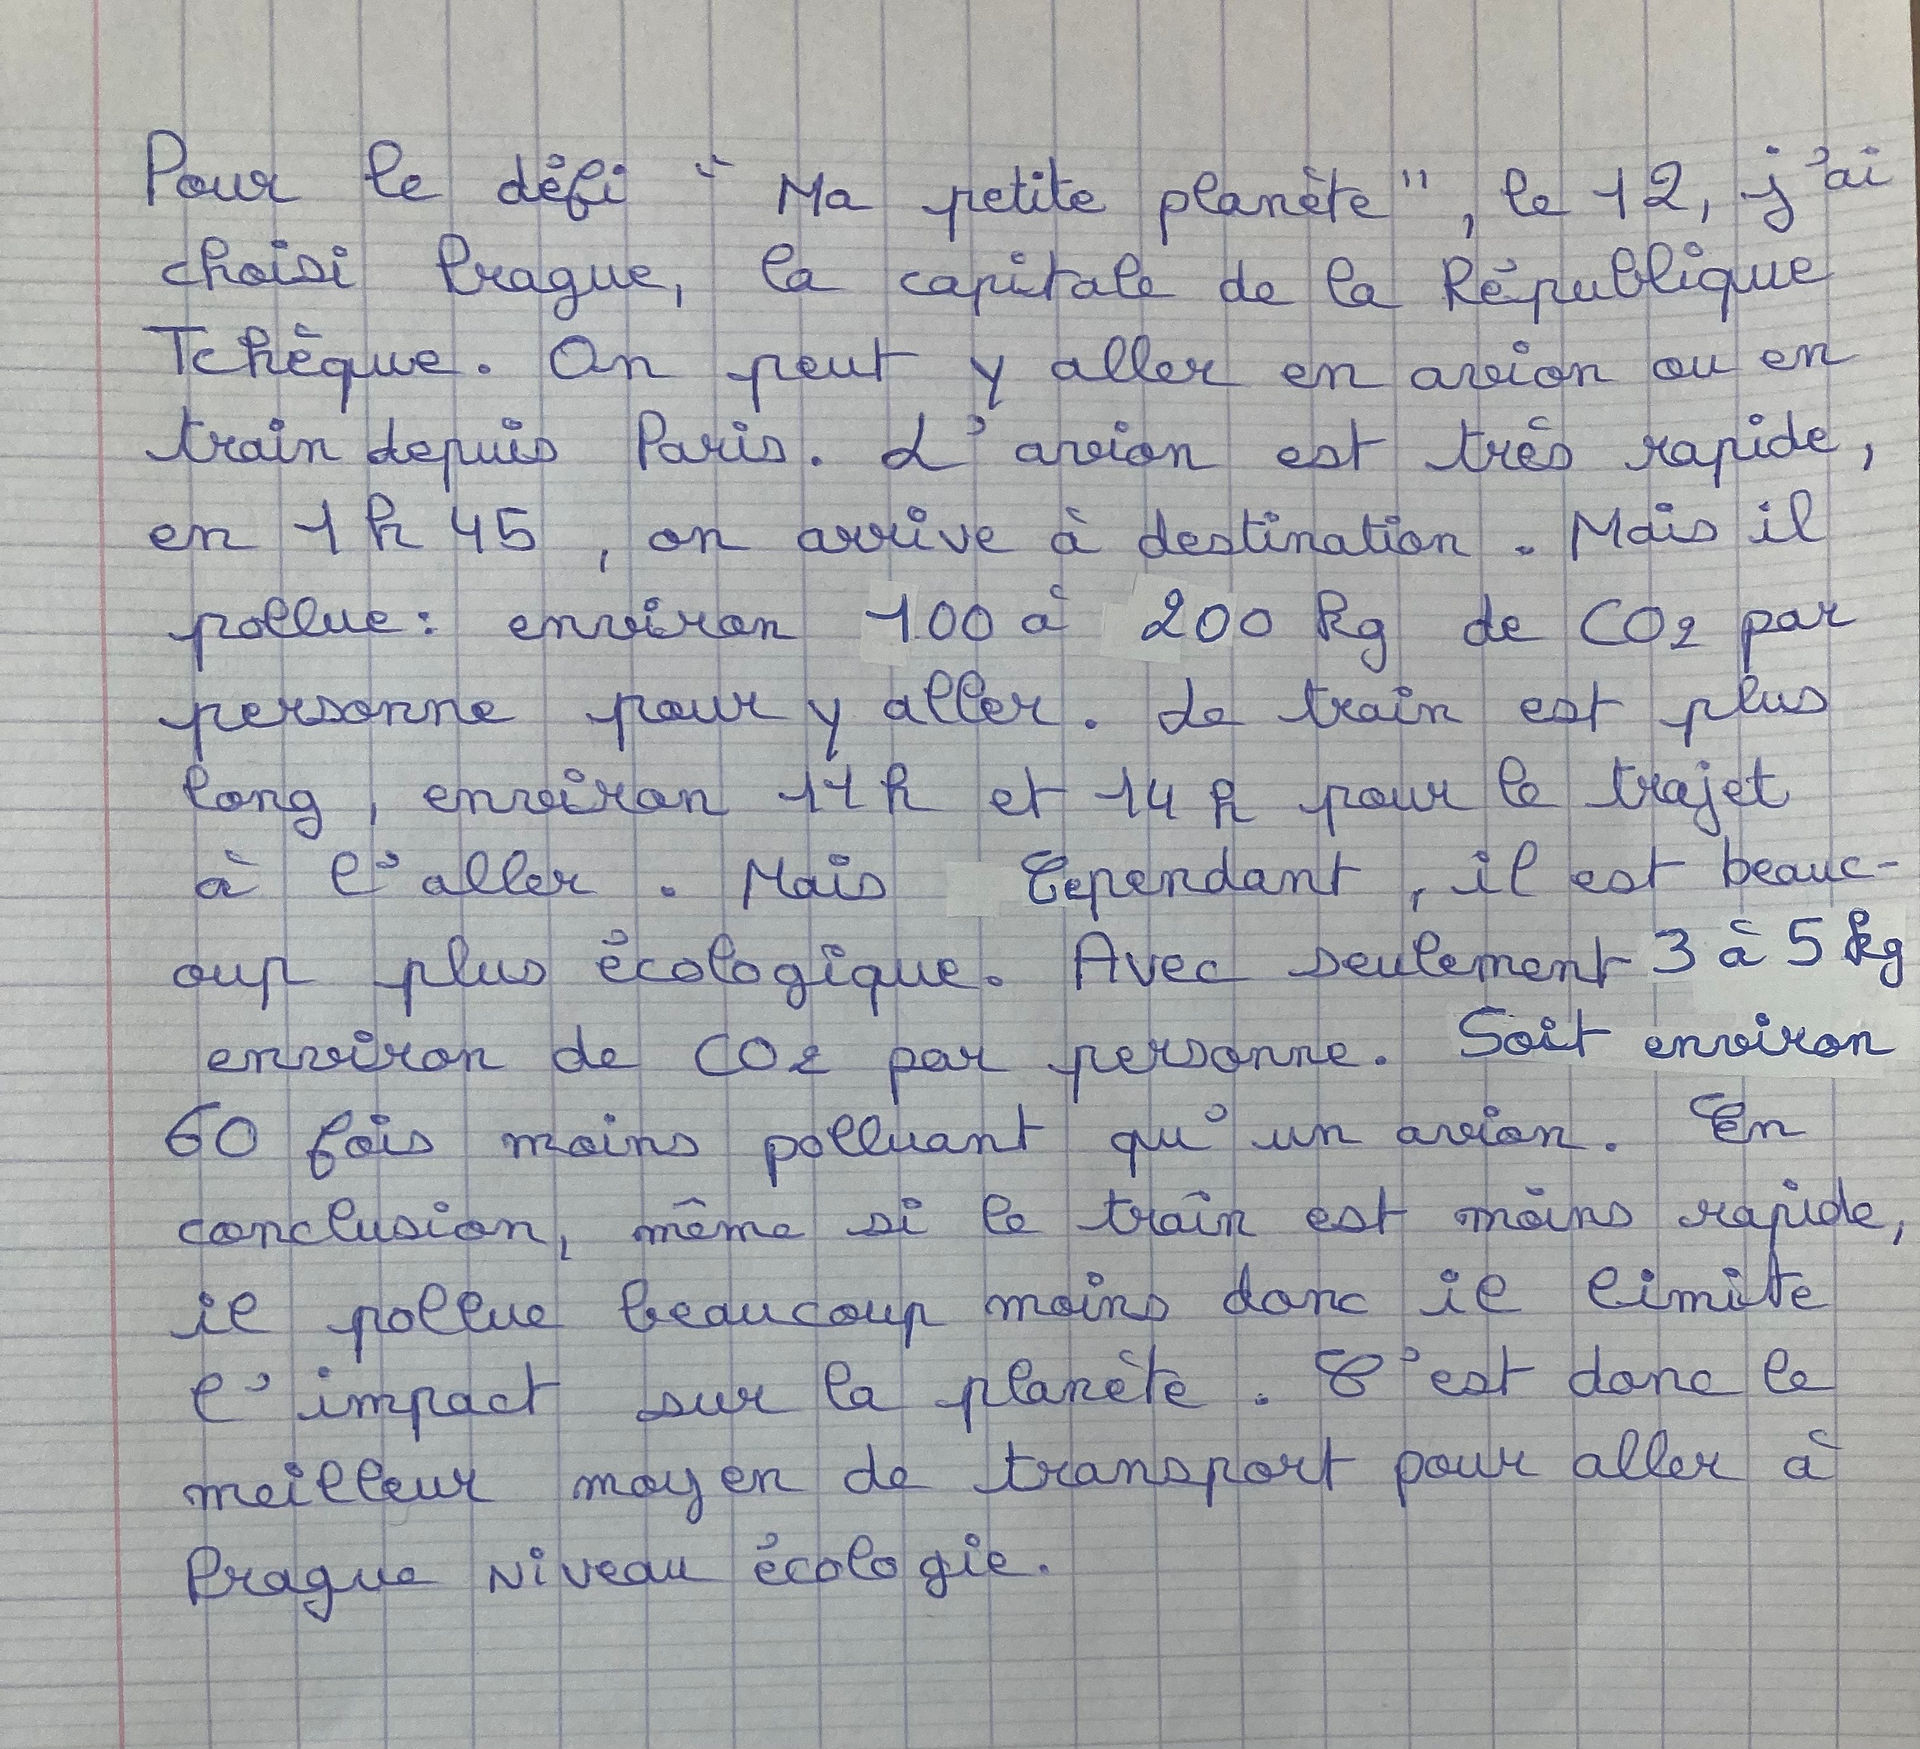 Pour le défi " Ma petite planète", le 12, j'ai
choisi Prague, la capitale de la République
Tchèque. On peut y aller en avion ou en
train depuis Paris. L'avion est très rapide,
en 1 h 45, on arrive à destination. Mais il
pollue: environ 100 à 200 kg de CO2 par
personne pour y aller. Le train est plus
long, environ h et 14 h pour le trajet
à l'aller. Mais Cependant, il est beauc-
oup plus écologique. Avec seulement 3 à 5 kg
environ de CO2 par personne. Soit environ
60 fois moins polluant qu'un avion. En
conclusion, même si le train est moins rapide,
il pollue beaucoup moins donc il limite
l'impact sur la planète. C'est donc le
meilleur moyen de transport pour aller à
Prague niveau écologie.